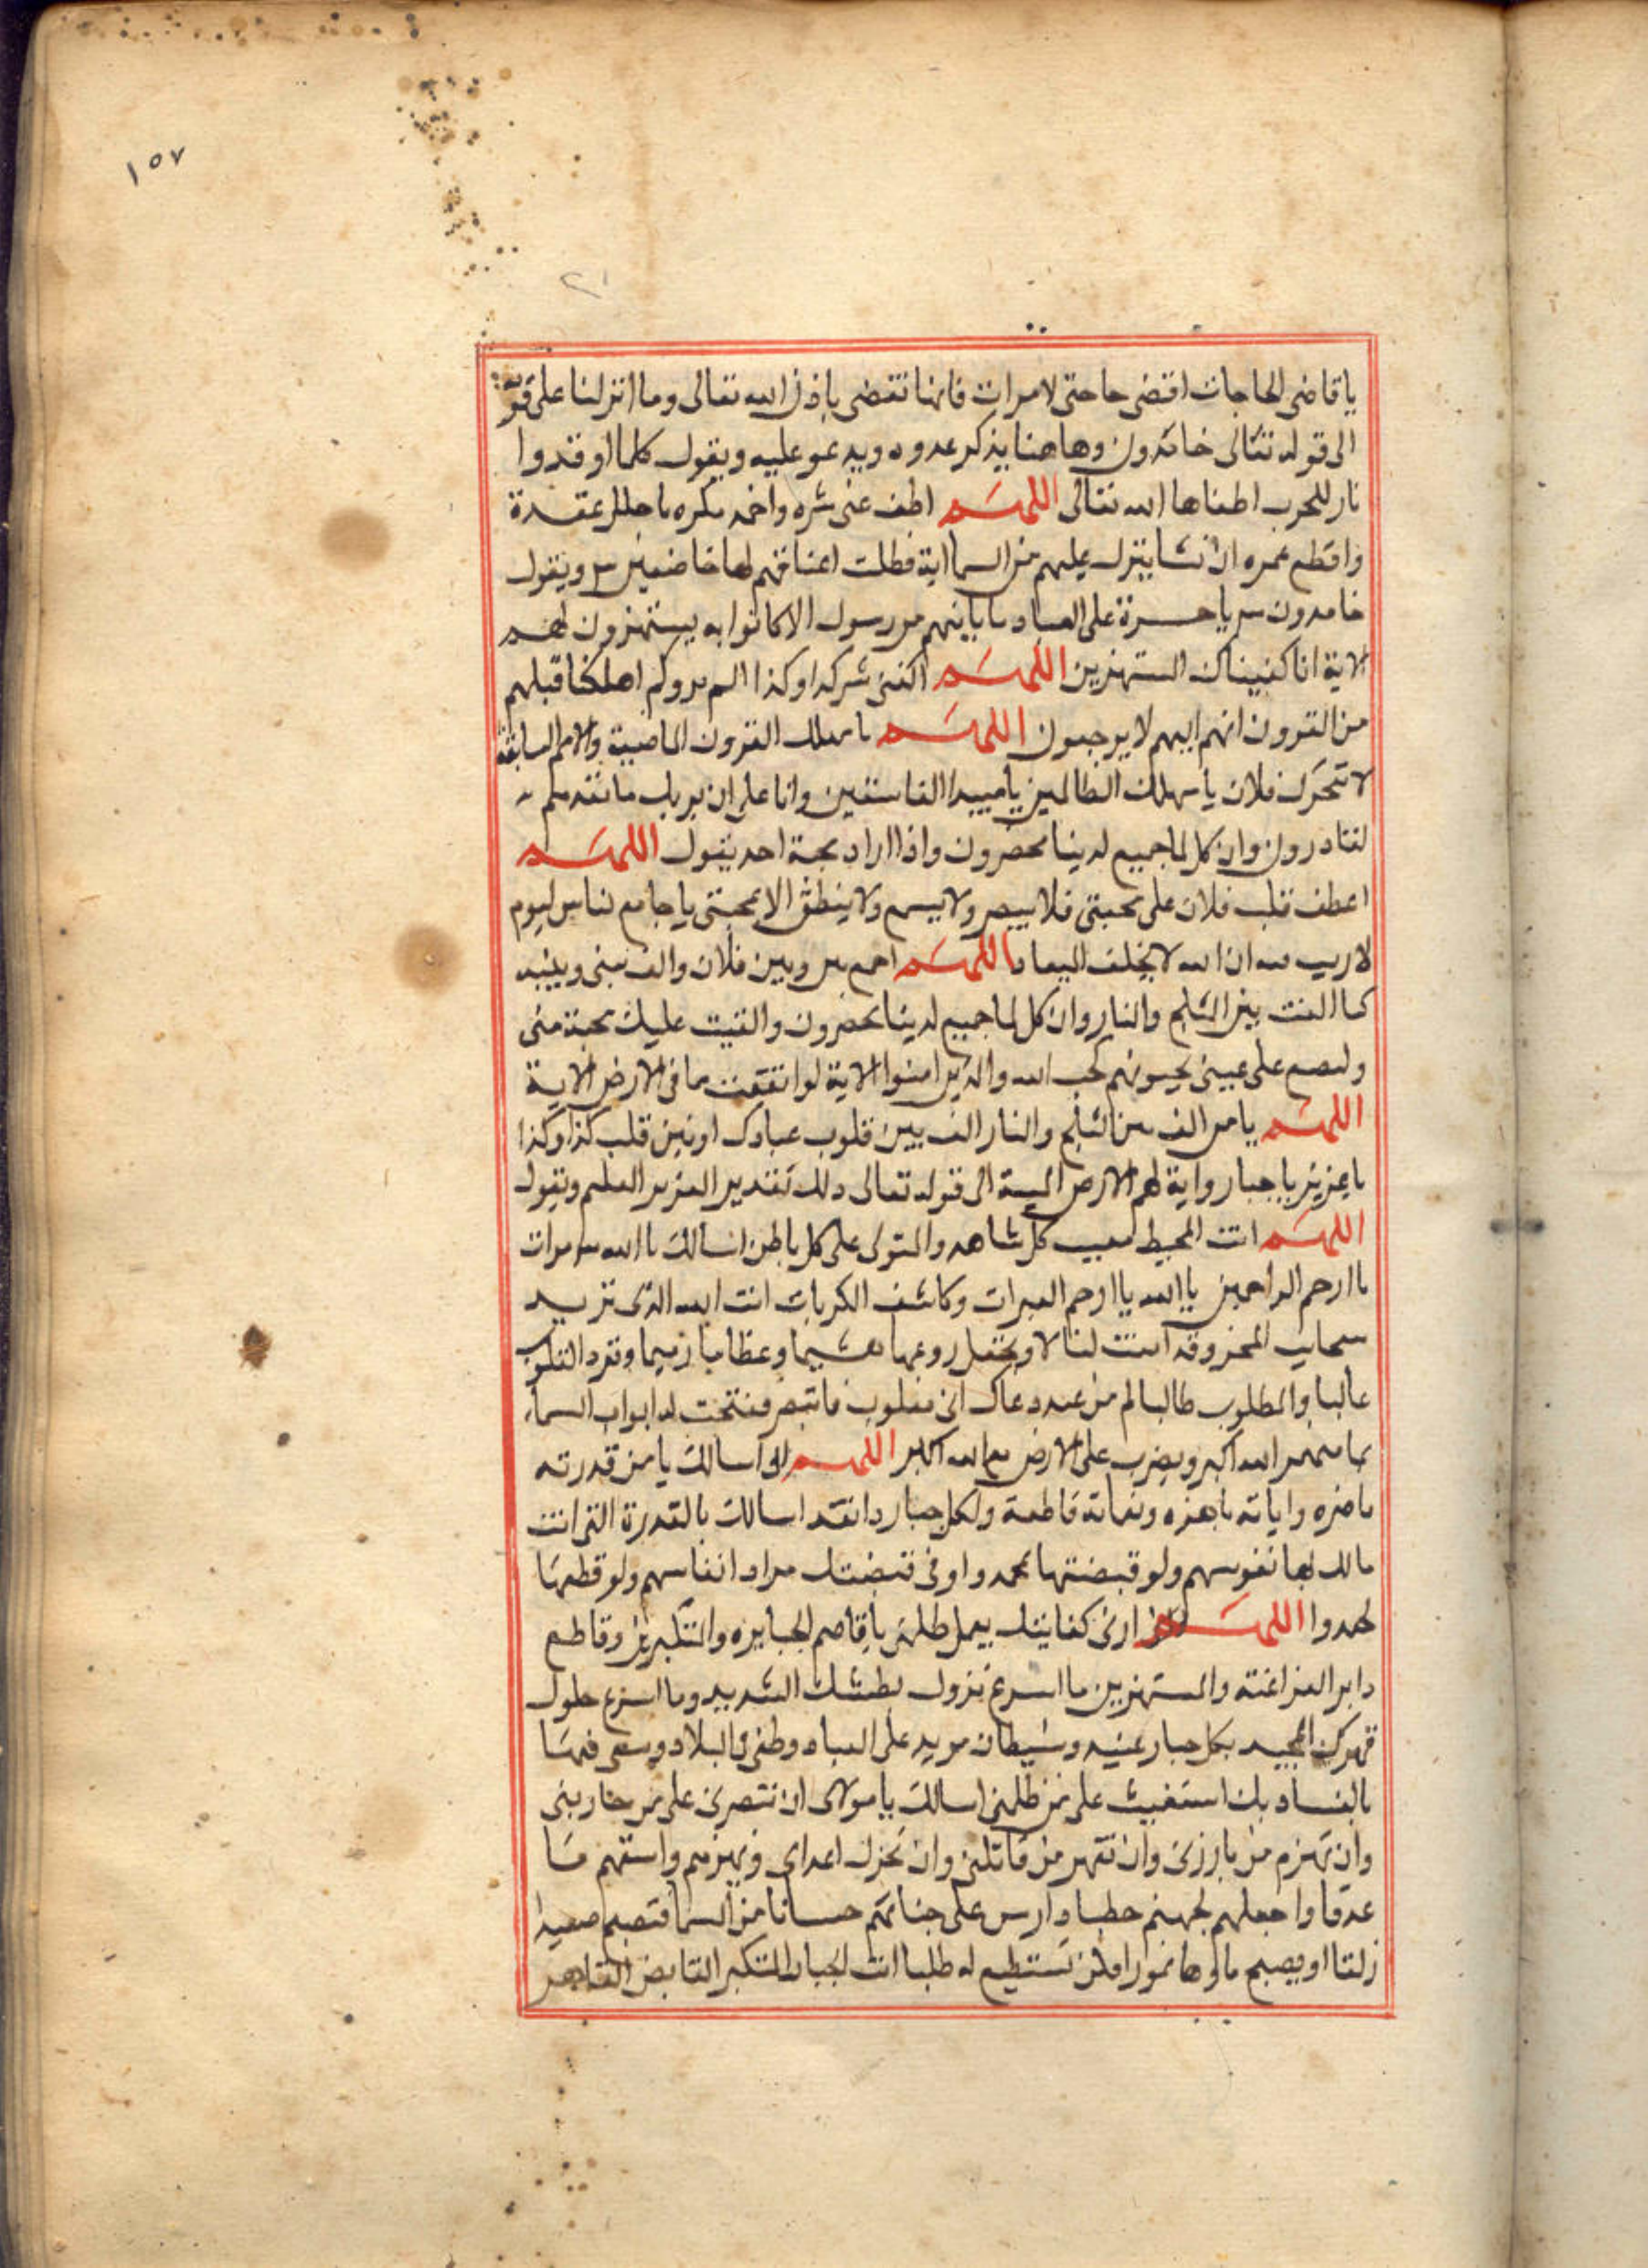 ١٥٧
٢١
يا قاضى الحاجات اقضى حاجتى لا مرات فانها تقضى باذن الله تعالى وما انزلنا على قومه
الى قوله تعالى خامدون وهاهنا يذكر عدوه ويدعو عليه ويقول كلما اوقدوا
نار للحرب اطفاها الله تعالى اللهم اطف عنى شره واخمد مكره واحلل عقدة
واقطع عمره ان نشا ينزل عليهم من السما اية فظلت اعناقهم لها خاضعين ويقول
خامدون يا حسرة على العباد ما ياتيهم من رسول الا كانوا به يستهزون
الاية انا كفيناك المستهزين اللهم اكفنى شر كذا وكذا الم يروا كم اهلكنا قبلهم
من القرون انهم اليهم لا يرجعون اللهم يا مهلك القرون الماضية والامم السابقة
لا تتحرك فلان يا مهلك الظالمين يا مبيد الفاسقين وانا على ان نريك ما نعدهم
لقادرون وان كل لما جميع لدينا محضرون واذا اراد محبة احد يقول اللهم
اعطف قلب فلان على محبتى فلا يبصر ولا يسمع ولا ينطق الا بمحبتى يا جامع الناس ليوم
لا ريب فيه ان الله لا يخلف الميعاد اللهم اجمع بينى وبين فلان والف بينى وبينه
كما الفت بين الثلج والنار وان كل لما جميع لدينا محضرون والقيت عليك محبة منى
ولتصنع على عينى يحبونهم كحب الله والذين امنوا الاية لو انفقت ما فى الارض الاية
اللهم يا من الف بين الثلج والنار الف بين قلوب عبادك او بين قلب كذا وكذا
يا عزيز يا جبار واية لهم الارض الميتة الى قوله تعالى ذلك تقدير العزيز العليم ويقول
اللهم انت المحيط بغيب كل شاهد والمتولى على كل باطن اسالك يا الله مرات
يا ارحم الراحمين يا الله يا ارحم العبرات وكاشف الكربات انت الله الذى تزيد
سحايب هشيما وعظاما رميما وترد المغلوب
غالبا والمطلوب طالبا لم من عبد دعاك انى مغلوب فانتصر ففتحت له ابواب السما
بما منهمر الله اكبر ويضرب على الارض الله اكبر اللهم انى اسالك يا من قدرته
واياته باهره ونقماته قاطعة ولكل جبار اسالك بالقدرة التى انت
مالك بها نفوسهم ولو قبضتها لخمدوا وفى قبضتك مراد انفاسهم ولو قطعها
لخمدوا اللهم ارنى كفايتك بمن ظلمنى يا قاصم الجبابره والمتكبرين وقاطع
دابر الفراعنة والمستهزين ما اسرع نزول بطشك الشديد وما اسرع حلول
قهرك المجيد بكل جبار عنيد وشيطان مريد على العباد وطغى فى البلاد وسعى فيها
بالفساد بك استغيث على من ظلمنى اسالك يا مولاى ان تنصرنى على من حاربنى
وان تهزم من بارزنى وان تقهر من قاتلنى وان تخزل اعداى وتهزمهم واسقهم ما
غدقا واجعلهم لجهنم حطبا وارس على جناتهم حسبانا من السما فتصبح صعيدا
زلقا او يصبح ماوها غورا فلن تستطيع له طلبا انت الجبار المتكبر القابض القاهر